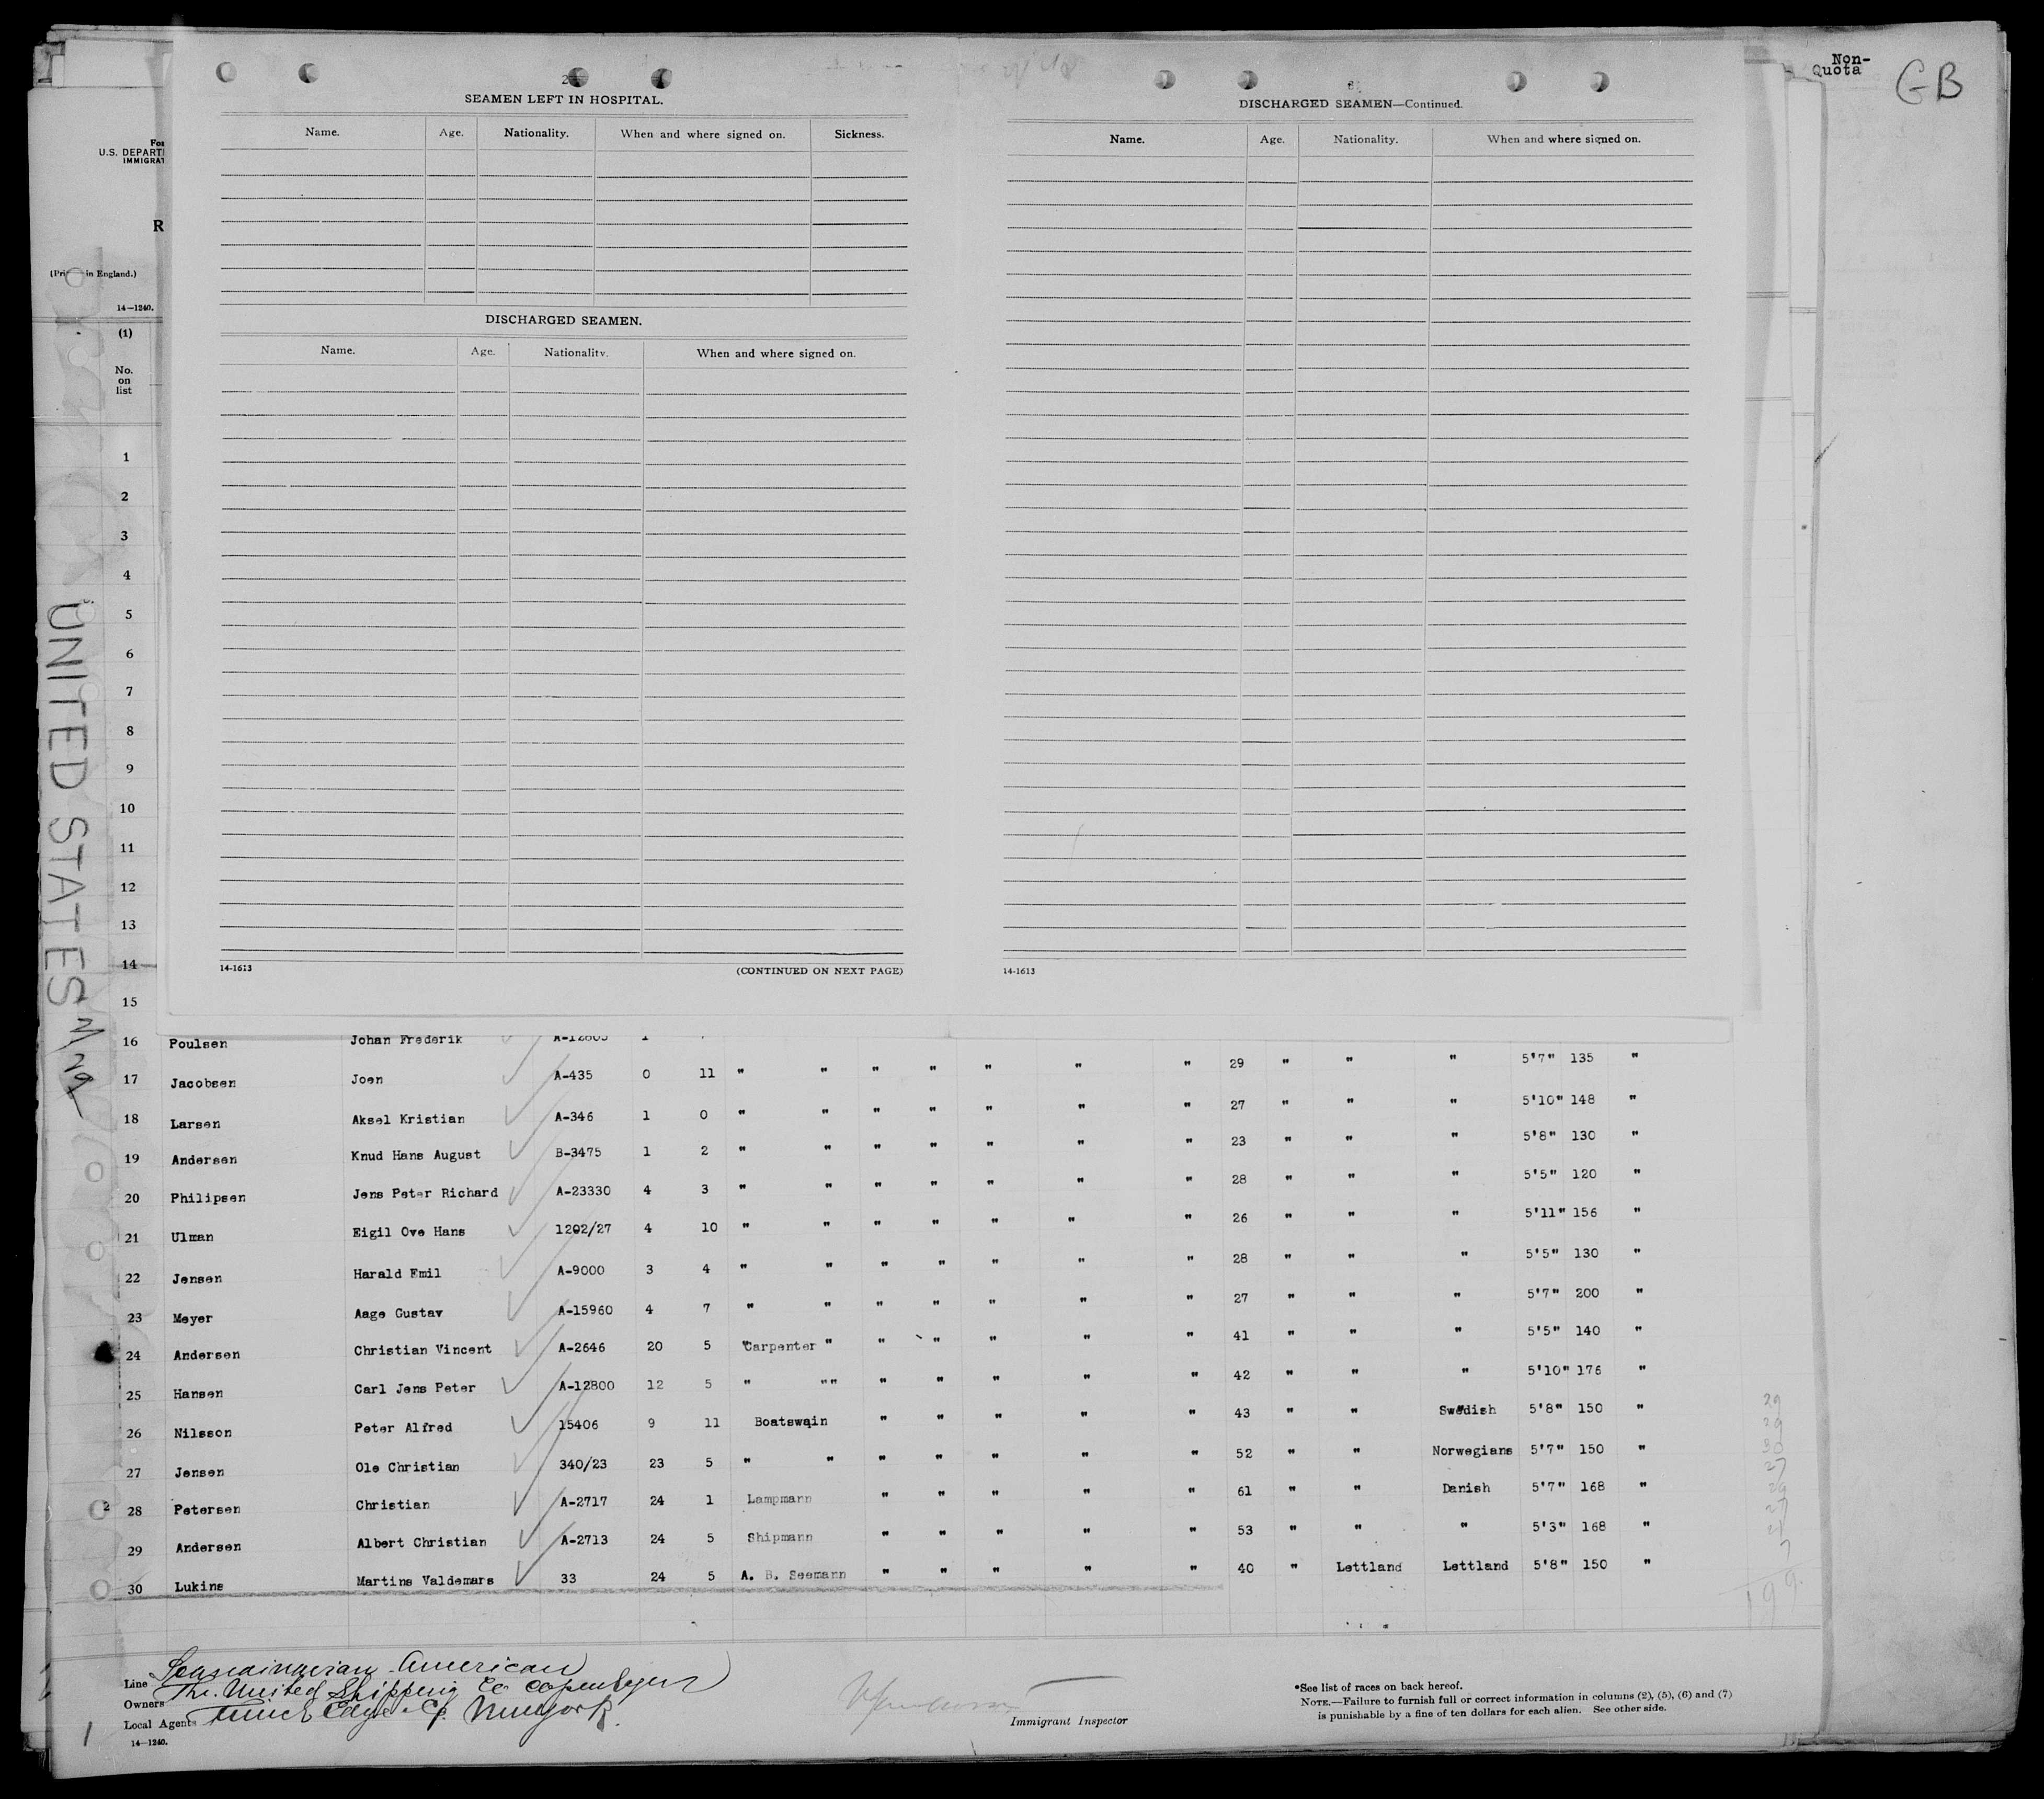 Non-
Quota
GB
SEAMEN LEFT IN HOSPITAL.
Name. Age. Nationality. When and where signed on. Sickness.
DISCHARGED SEAMEN.
Name. Age. Nationality. When and where signed on.
14-1613 (CONTINUED ON NEXT PAGE)
DISCHARGED SEAMEN—Continued.
Name. Age. Nationality. When and where signed on.
14-1613
U.S. DEPART
IMMIGRAT
R
in England.)
14—1240.
(1)
No.
on
list
1
2
3
4
5
6
7
8
9
10
11
12
13
14
15
UNITED STATES
16 Poulsen Johan Frederik
17 Jacobsen Joen A-435 0 11 " " " " " " " 29 " " " 5'7" 135 "
18 Larsen Aksel Kristian A-346 1 0 " " " " " " " 27 " " " 5'10" 148 "
19 Andersen Knud Hans August B-3475 1 2 " " " " " " " 23 " " " 5'8" 130 "
20 Philipsen Jens Peter Richard A-23330 4 3 " " " " " " " 28 " " " 5'5" 120 "
21 Ulman Eigil Ove Hans 1202/27 4 10 " " " " " " " 26 " " " 5'11" 156 "
22 Jensen Harald Emil A-9000 3 4 " " " " " " " 28 " " " 5'5" 130 "
23 Meyer Aage Gustav A-15960 4 7 " " " " " " " 27 " " " 5'7" 200 "
24 Andersen Christian Vincent A-2646 20 5 Carpenter " " " " " " 41 " " " 5'5" 140 "
25 Hansen Carl Jens Peter A-12800 12 5 " "" " " " " " 42 " " " 5'10" 176 "
26 Nilsson Peter Alfred 15406 9 11 Boatswain " " " " " 43 " " Swedish 5'8" 150 "
27 Jensen Ole Christian 340/23 23 5 " " " " " " " 52 " " Norwegians 5'7" 150 "
28 Petersen Christian A-2717 24 1 Lampmann " " " " " 61 " " Danish 5'7" 168 "
29 Andersen Albert Christian A-2713 24 5 Shipmann " " " " " 53 " " " 5'3" 168 "
30 Lukins Martins Valdemars 33 24 5 A. B. Seemann " " " " " 40 " Lettland Lettland 5'8" 150 "
199
Line Scandinavian American
Owners The United Shipping Co Copenhagen
Local Agents
1
14—1240.
Immigrant Inspector
*See list of races on back hereof.
NOTE.—Failure to furnish full or correct information in columns (2), (5), (6) and (7)
is punishable by a fine of ten dollars for each alien. See other side.